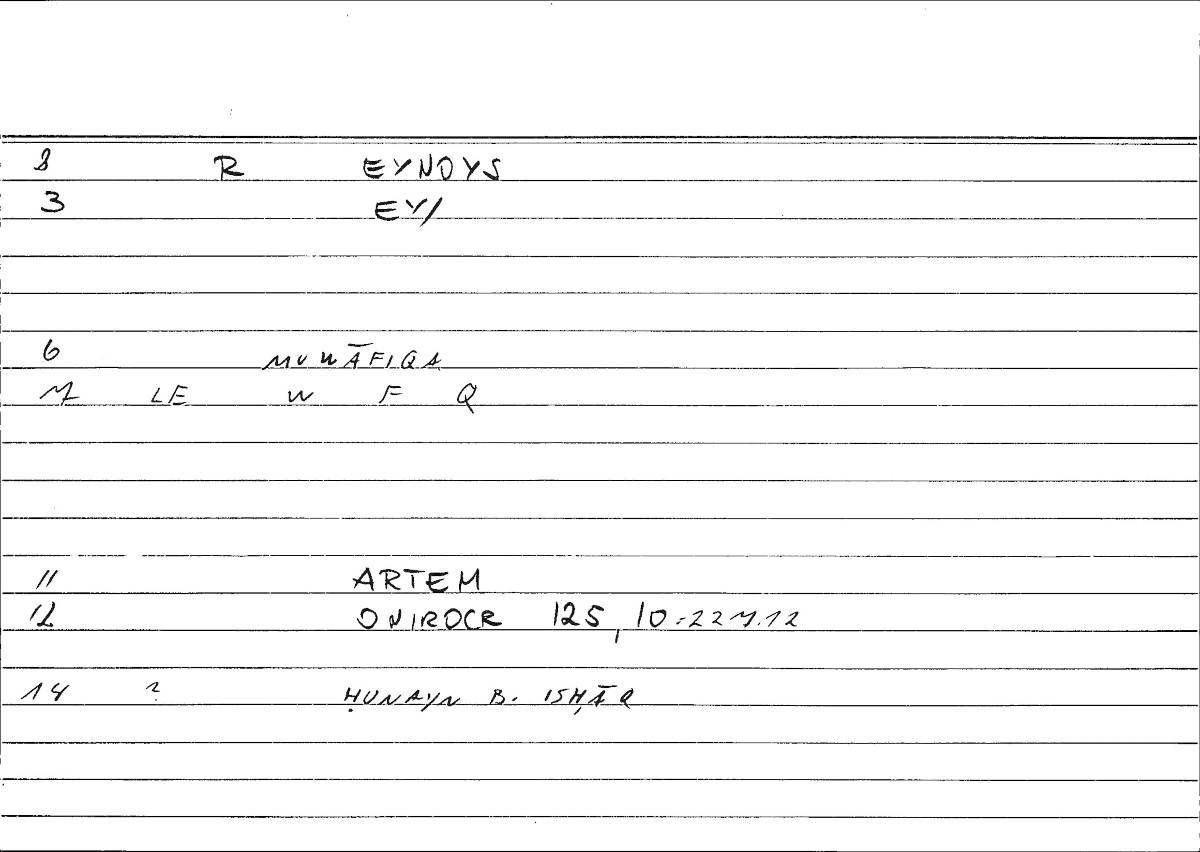 8 R EYNOYS
3 EY/
6 MUWĀFIQA
7 LE W F Q
11 ARTEM
12 ONIROCR 125, 10-227.12
14 ? ḤUNAYN B. ISḤĀQ